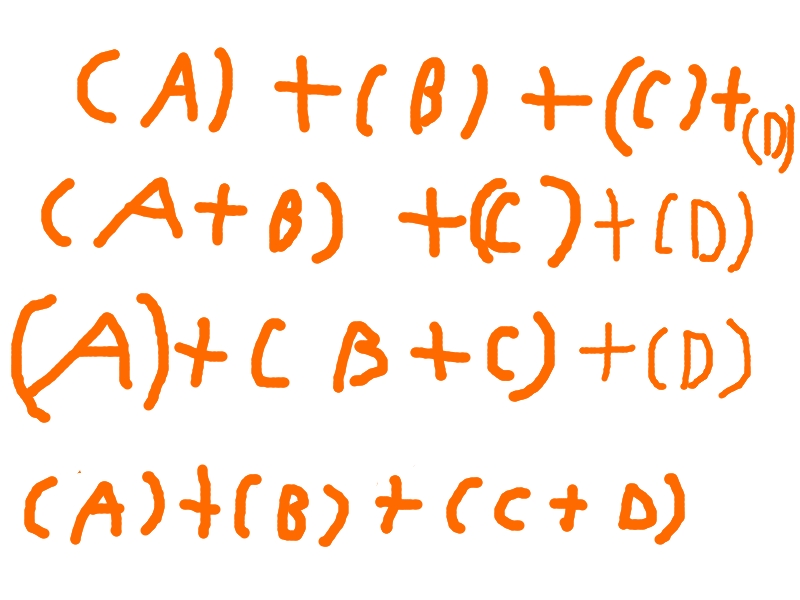 (A) + (B) + (C) + (D)
(A + B) + (C) + (D)
(A) + (B + C) + (D)
(A) + (B) + (C + D)